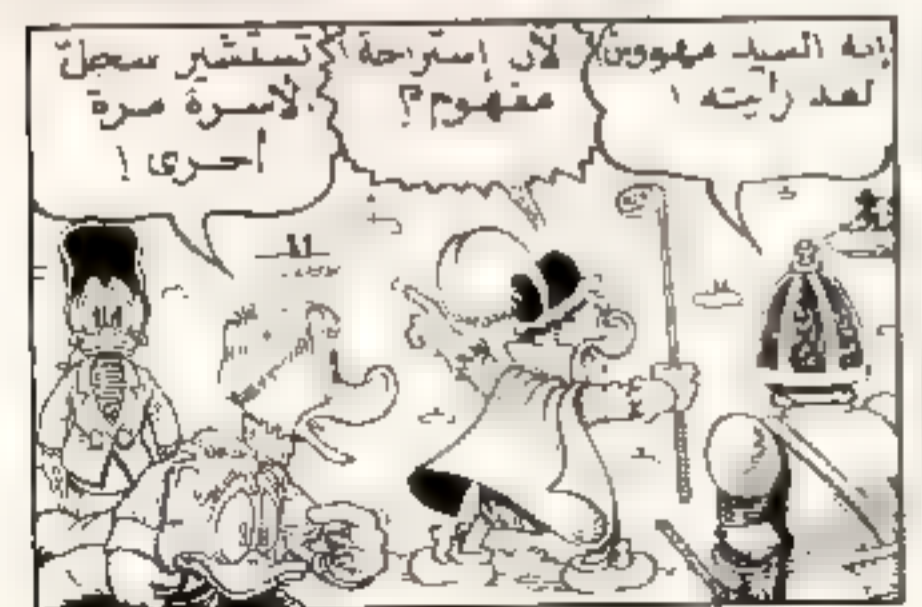 إنه السيد
لقد رأيته !
لان إستراحة
مفهوم ؟
تستشير سجل
لأسرة مرة
أخرى !